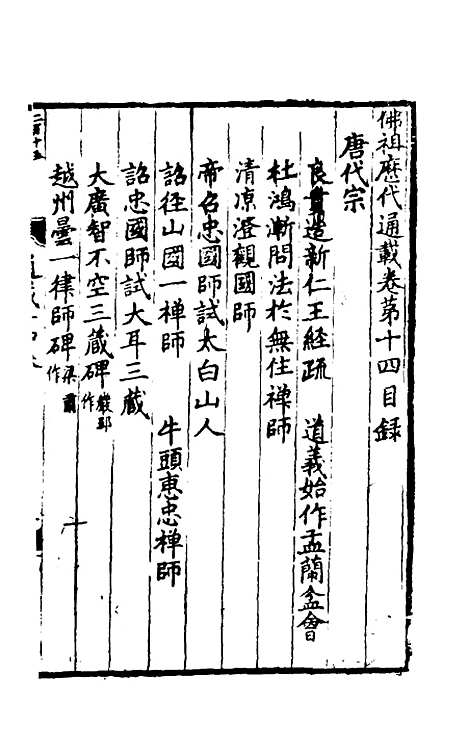 佛祖歷代通載卷第十四目録
唐代宗
良賁造新仁王經疏　道義始作盂蘭盆會
杜鴻漸問法於無住禅師
清凉澄觀國師
帝召忠國師試太白山人
詔徑山國一禅師　牛頭惠忠禅師
詔忠國師試大耳三藏
大廣智不空三藏碑嚴郢作
越州曇一律師碑梁肅作